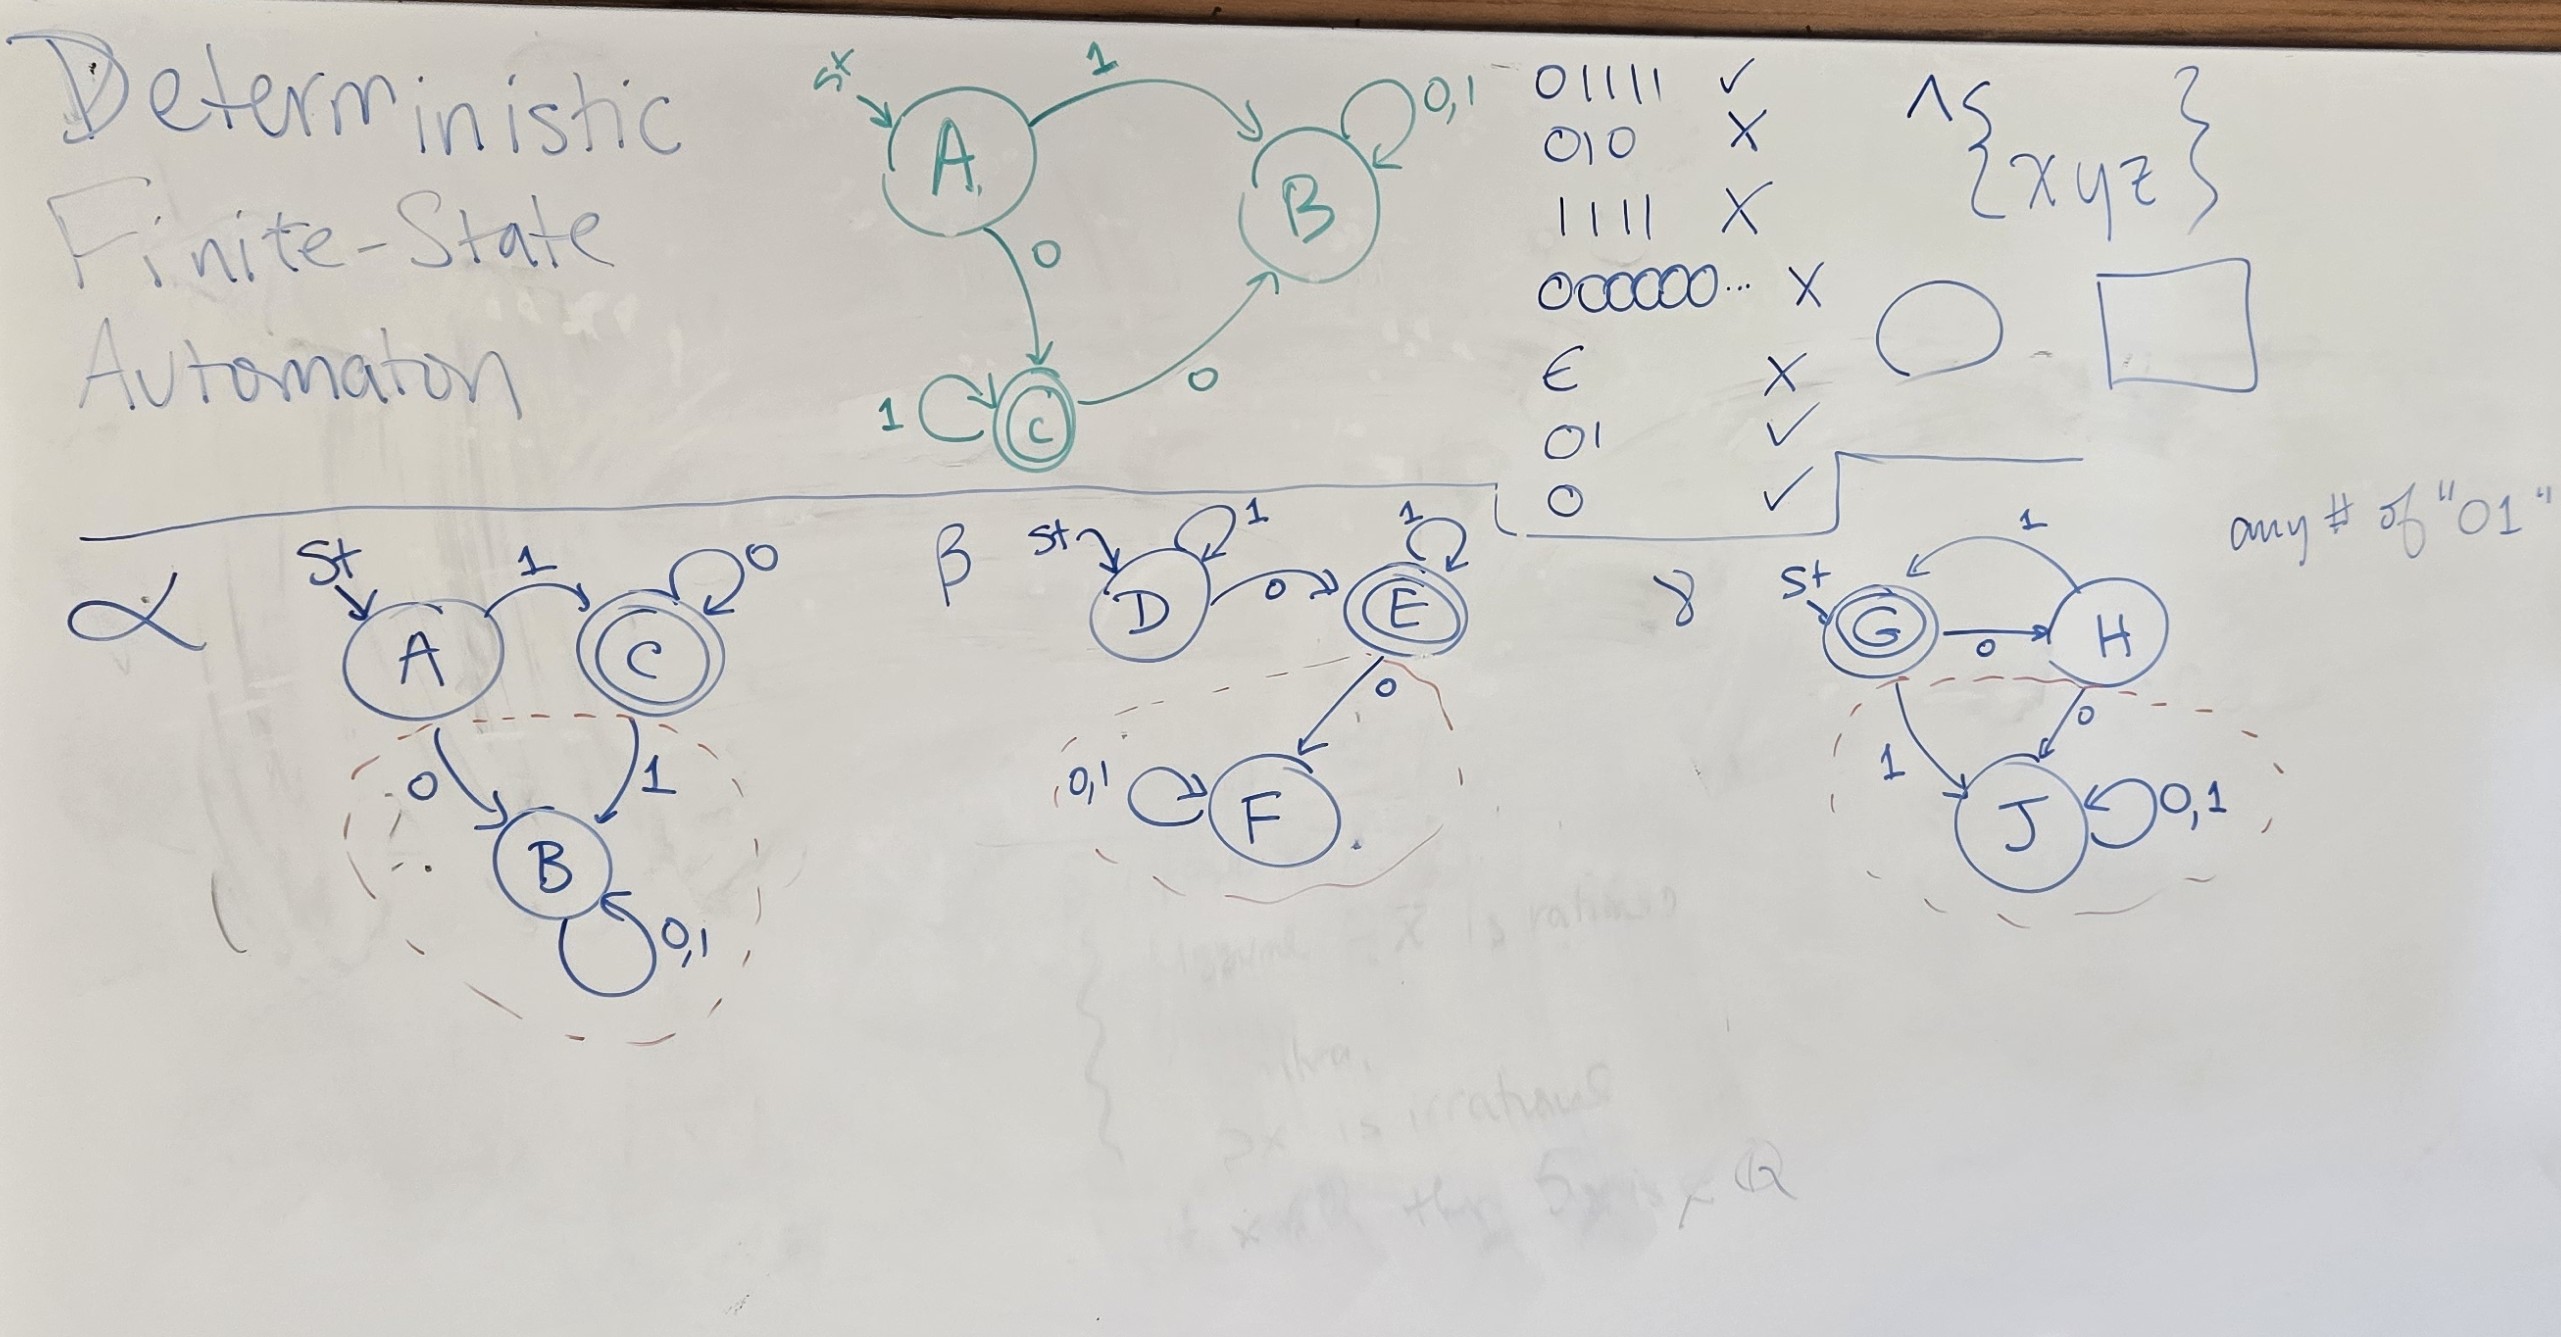 Deterministic
Finite-State
Automaton
st
A
1
B
0,1
0
1
C
0
01111 ✓
010 X
1111 X
000000... X
ϵ X
01 ✓
0 ✓
{xyz}
α
St
A
1
C
0
0
1
B
0,1
β
St
D
1
0
E
1
0
F
0,1
γ
St
G
0
H
1
1
0
J
0,1
any # of "01"